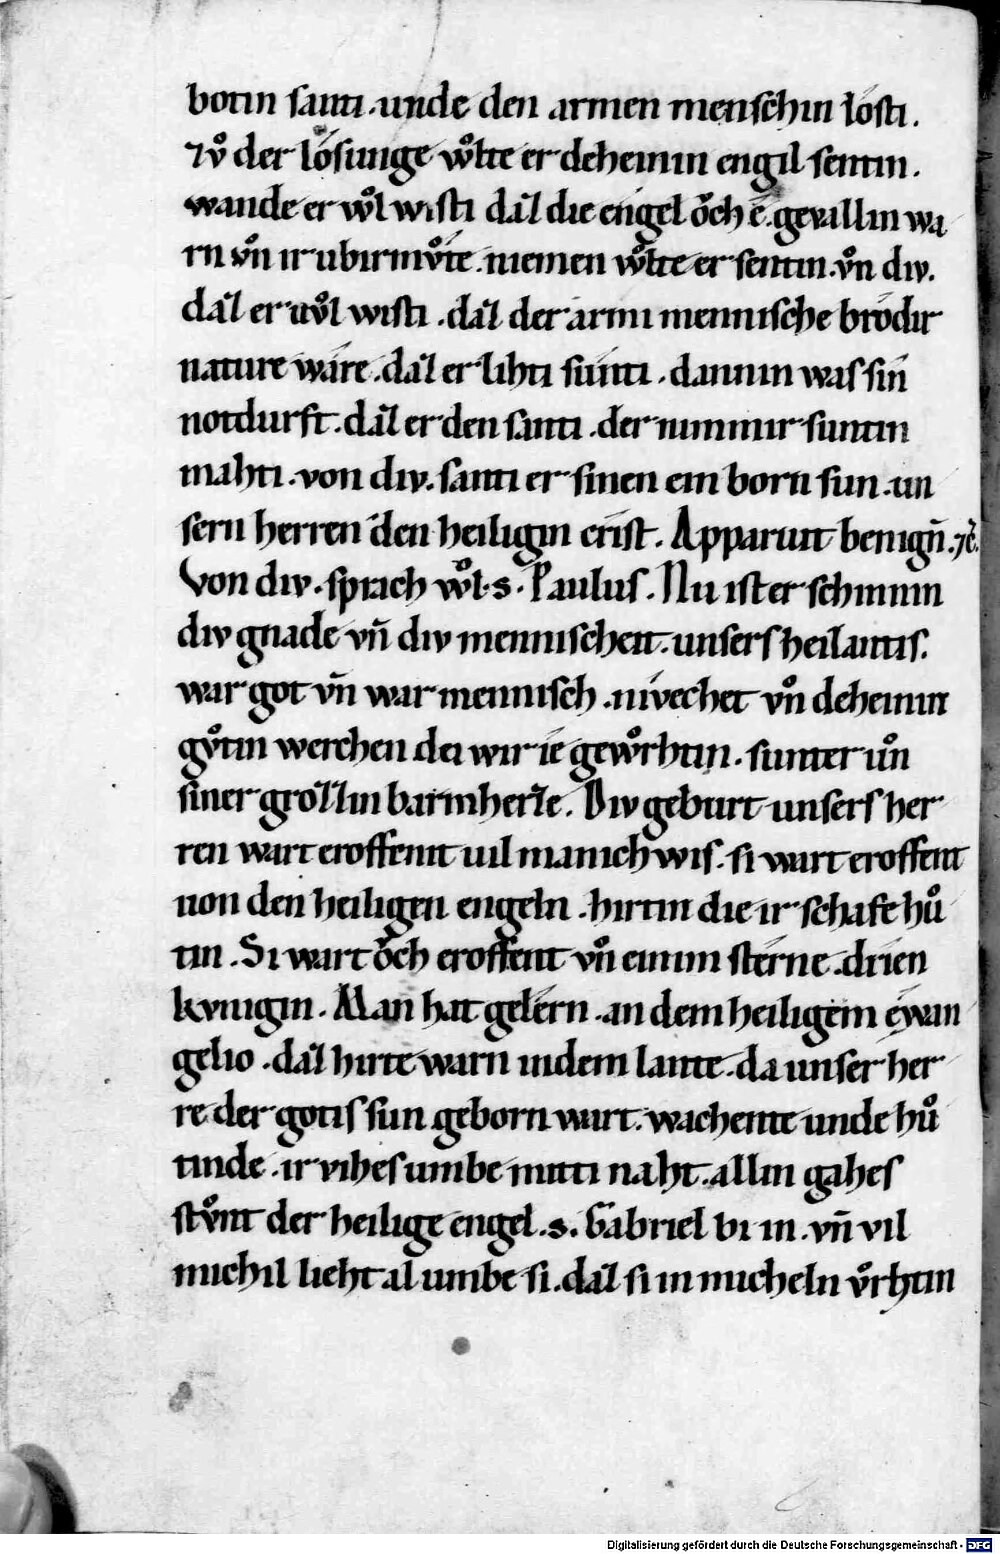 botin santi. unde den armen menschin lósti.
Zů der lósunge wôlte er deheinin engil sentin.
wande er wôl wisti daſ die engel ôch é. gevallin wa
rn vǒn ir ubirmv̊te. niemen wôlte er sentin. vǒn div.
daſ er uvǒl wisti. daſ der armi mennische brodir
nature wáre. daſ er lihti sunti. dannin was sin
notdurft. daſ er den santi. der nimmir suntin
mahti. von div. santi er sinen ein born sun. un
sern herren den heiligin crist. Apparuit benignͣ. ⁊c̃.
Von div. sprach wôl. S. Paulus. Nu ist er schinnin
div gnade vn̄ div mennischeit. unsers heilantis.
war got vn̄ war mennisch. nivechet vǒn deheinin
gv̊tin werchen dei wir ie gewôrhtin. sunter uǒn
siner groſſin barmherſe. Div geburt unsers her
ren wart eroffenit uil manich wis. si wart eroffent
uon den heiligen engeln. hirtin die ir schafe hů
tin. Si wart ôch eroffent vǒn einim sterne. drien
kvnigin. Man hat gelern. an dem heiligem éwan
gelio. daſ hirte warn indem lante. da unser her
re der gotis sun geborn wart. wachente unde hů
tinde. ir vihes umbe mitti naht. allin gahes
stv̊nt der heilige engel. S. Gabriel bi in. vn̄ vil
michil lieht al umbe si. daſ si in micheln vǒrhtin
Digitalisierung gefördert durch die Deutsche Forschungsgemeinschaft - DFG